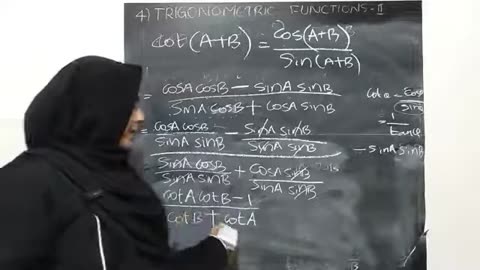 4) TRIGONOMETRIC FUNCTIONS-II
cot (A+B) = cos(A+B)
sin(A+B)
= cosA cosB - sinA sinB
sinA cosB + cosA sinB
= cosA cosB - sinA sinB
sinA sinB sinA sinB
sinA cosB + cosA sinB
sinA sinB sinA sinB
cotA cotB - 1
cotB + cotA
cot θ = cosθ
sinθ
= 1
tanθ
- sinA sinB